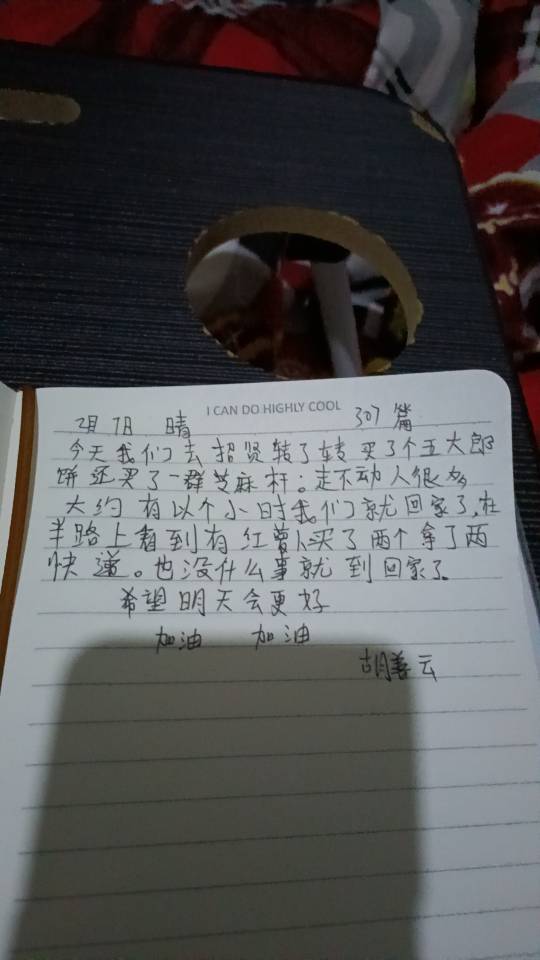 I CAN DO HIGHLY COOL
2月7日 晴 307篇
今天我们去招贤转了转买了个五大郎
饼还买了一群芝麻杆；走不动人很多
大约有以个小时我们就回家了,在
半路上看到有红萝卜买了两个拿了两
快递。也没什么事就到回家了
希望明天会更好
加油 加油
胡善云